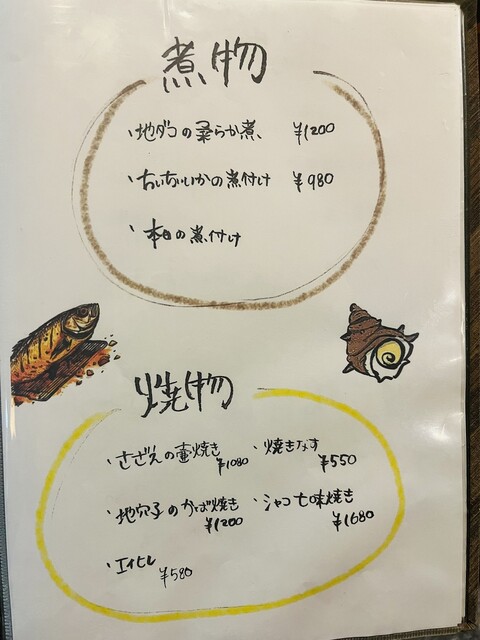 煮物
・地ダコの柔らか煮 ¥1200
・ちいちいいかの煮付け ¥980
・本日の煮付け
焼物
・さざえの壷焼き ¥1080
・焼きなす ¥550
・地穴子のかば焼き ¥1200
・シャコ七味焼き ¥1680
・エイヒレ ¥580